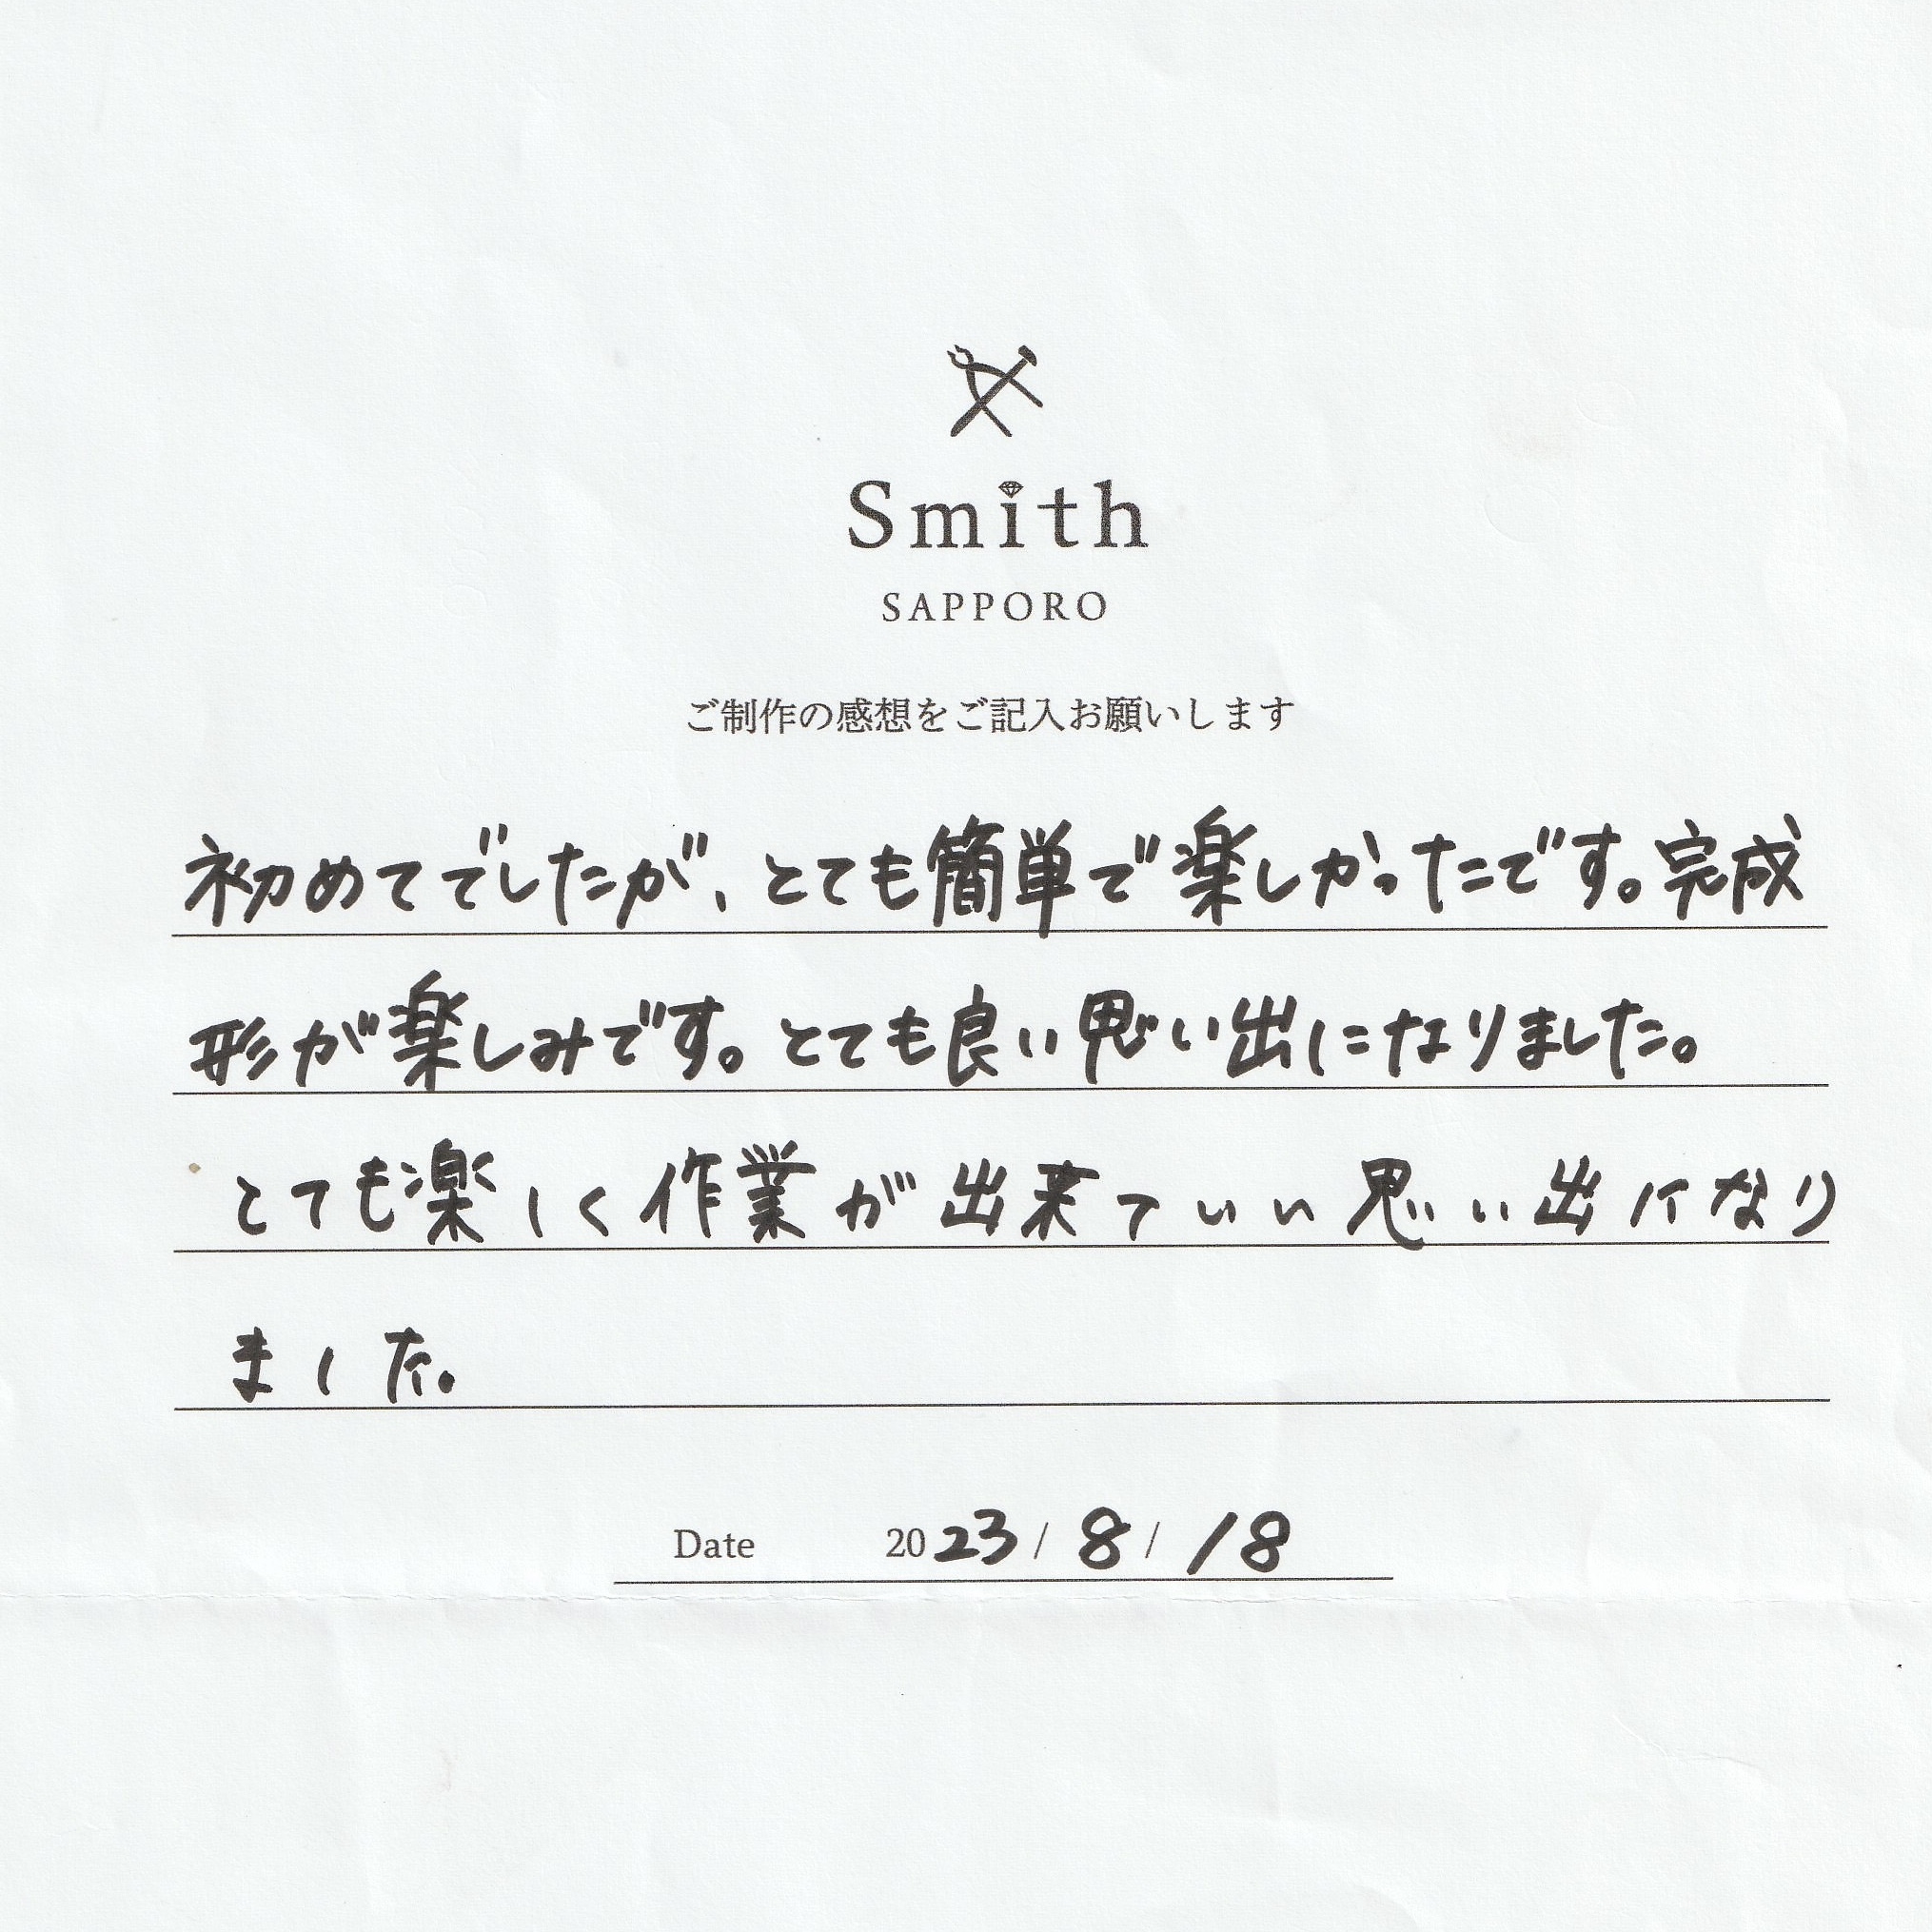 Smith
SAPPORO
ご制作の感想をご記入お願いします
初めてでしたが、とても簡単で楽しかったです。完成
形が楽しみです。とても良い思い出になりました。
とても楽しく作業が出来ていい思い出になり
ました。
Date 2023/8/18